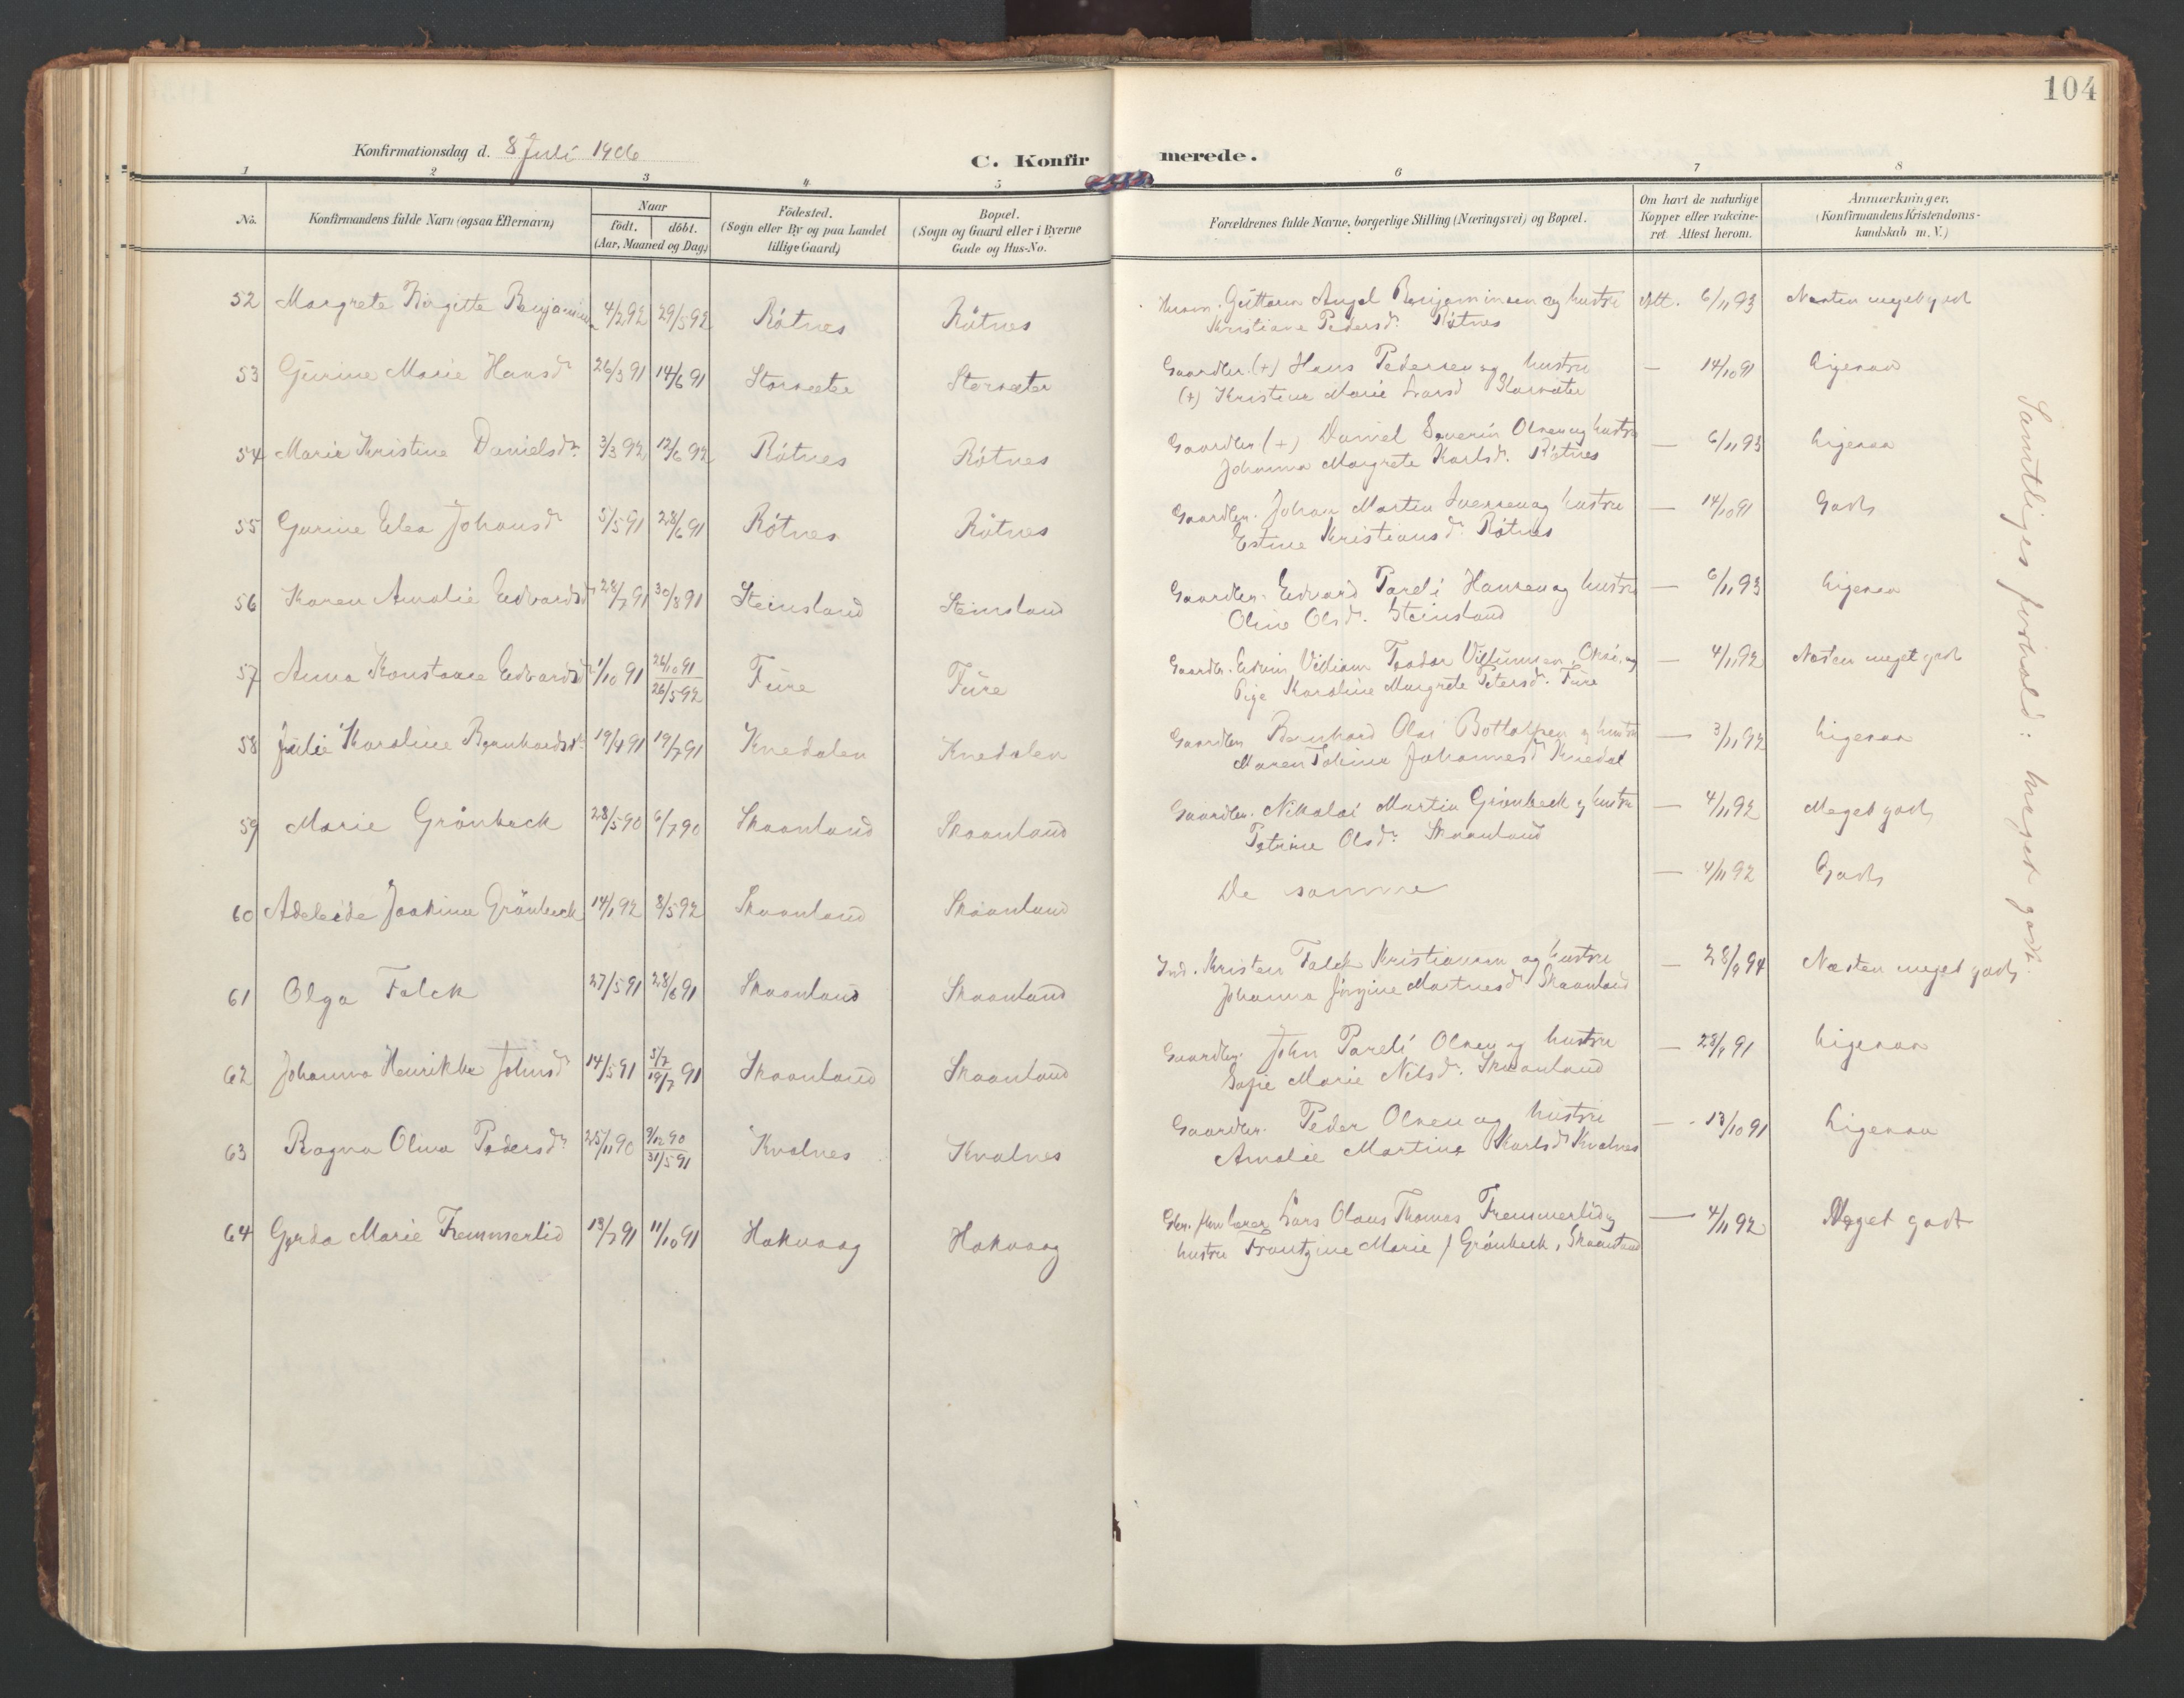 104
Konfirmationsdag d. 8 Juli 1906
C. Konfirmerede.
1 2 3 4 5 6 7 8
No. Konfirmandens fulde Navn (ogsaa Efternavn) Naar födt. döbt. (Aar, Maaned og Dag.) Födested. (Sogn eller By og paa Landet tillige Gaard) Bopæl. (Sogn og Gaard eller i Byerne Gade og Hus-No. Forældrenes fulde Navne, borgerlige Stilling (Næringsvei) og Bopæl. Om havt de naturlige Kopper eller vakcineret Attest herom. Anmærkninger. (Konfirmandens Kristendomskundskab m. V.)
52 Margrete Birgitte Benjamins 4/2 92 29/5 92 Rötnes Rötnes Guttorm Angel Benjaminsen og hustru Att. 6/11 93 Næsten meget godt
Kristiane Pedersdr. Rötnes
53 Gurine Marie Hansdr 26/3 91 14/6 91 Storsæter Storsæter Gaardbr. (+) Hans Pedersen og hustru — 14/10 91 Ligesaa
(+) Kristine Marie Larsd Storsæter
54 Marie Kristine Danielsdr. 3/3 92 12/6 92 Rötnes Rötnes Gaardbr (+) Daniel Severin Olsen og hustru — 6/11 93 Ligesaa
Johanna Margrete Karlsdr. Rötnes
55 Gurine Elea Johansdr 5/5 91 28/6 91 Rötnes Rötnes Gaardbr. Johan Morten Iversen og hustru — 14/10 91 Godt
Estine Kristiansdr. Rötnes
56 Karen Amalie Edvardsdr 28/7 91 30/8 91 Steinsland Steinsland Gaardbr. Edvard Pareli Hansen og hustru — 6/11 93 Ligesaa
Oline Olsdr. Steinsland
57 Anna Konstanse Edvardsdr 1/10 91 26/10 91 26/5 92 Fure Fure Gaardbr. Edvin Villiam Teodor og — 4/11 92 Næsten meget godt
Pige Karoline Margrete Petersdr. Fure
58 Julie Karoline Bernhardsdr. 19/4 91 19/7 91 Knedalen Knedalen Gaardbr Bernhard Olai Bottolfsen og hustru — 3/11 92 Ligesaa
Maren Tomine Johannesdr Knedal
59 Marie Grönbeck 28/5 90 6/7 90 Skaanland Skaanland Gaardbr. Nikolai Martin Grönbeck og hustru — 4/11 92 Meget godt
Petrine Olsdr. Skaanland
60 Adeleide Joakine Grönbeck 14/1 92 8/5 92 Skaanland Skaanland De samme — 4/11 92 Godt
61 Olga Falck 27/5 91 28/6 91 Skaanland Skaanland Ind. Kristen Falck Kristiansen og hustru — 28/9 94 Næsten meget godt
Johanna Jörgine Martinesdr Skaanland
62 Johanna Henrikke Johnsd 14/5 91 5/7 19/7 91 Skaanland Skaanland Gaardbr. John Pareli Olsen og hustru — 28/9 91 Ligesaa
Sofie Marie Nilsdr. Skaanland
63 Ragna Olina Pedersdr 25/11 90 3/12 90 31/5 91 Kvalnes Kvalnes Gaardbr. Peder Olsen og hustru — 13/10 91 Ligesaa
Amalie Martine Karlsdr Kvalnes
64 Gerda Marie Fremmerlid 13/7 91 11/10 91 Hakvaag Hakvaag Gbr. Lars Olaus Thomas Fremmerlid og — 4/11 92 Meget godt
hustru Frantzine Marie f Grönbeck, Skaanland
Samtliges forhold: meget godt.